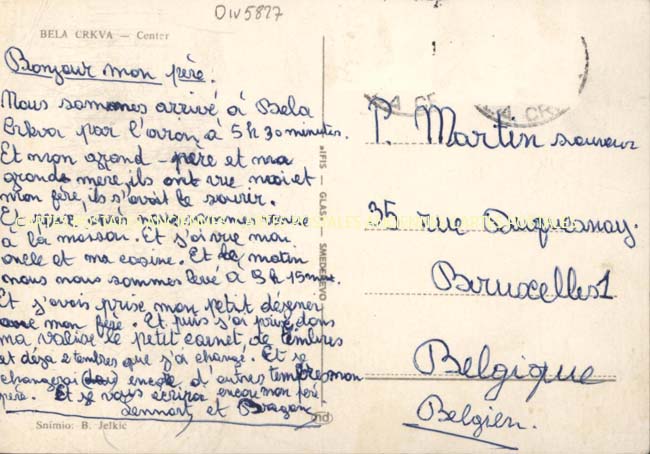 OIV5827
BELA CRKVA — Center
Bonjour mon père.
Nous sommes arrivé à Bela
Crkva par l'avion, à 5 h 30 minutes.
Et mon grand-père et ma
grande mère, ils ont vue moi et
mon fère, ils s'avait le sourir.
Et puis
à la maison. Et s'ai vue mon
oncle et ma cosine. Et le matin
nous nous sommes levé à 8 h 15 mnt.
Et s'avois prise mon petit dézener
avec mon fère. Et puis s'ai prise, dans
ma valise le petit carnet, de tembres
et déza 2 tembres que j'ai change. Et se
changerai encore d'autres tembres mon
père. Et se vous écrirai encore mon père
Lennart et Dragan
Snimio: B. Jelkić
IFIS — GLAS SMEDEREVO
P. Martin sauveur
35 rue Duquesnoy.
Bruxelles 1
Belgique
Belgien.